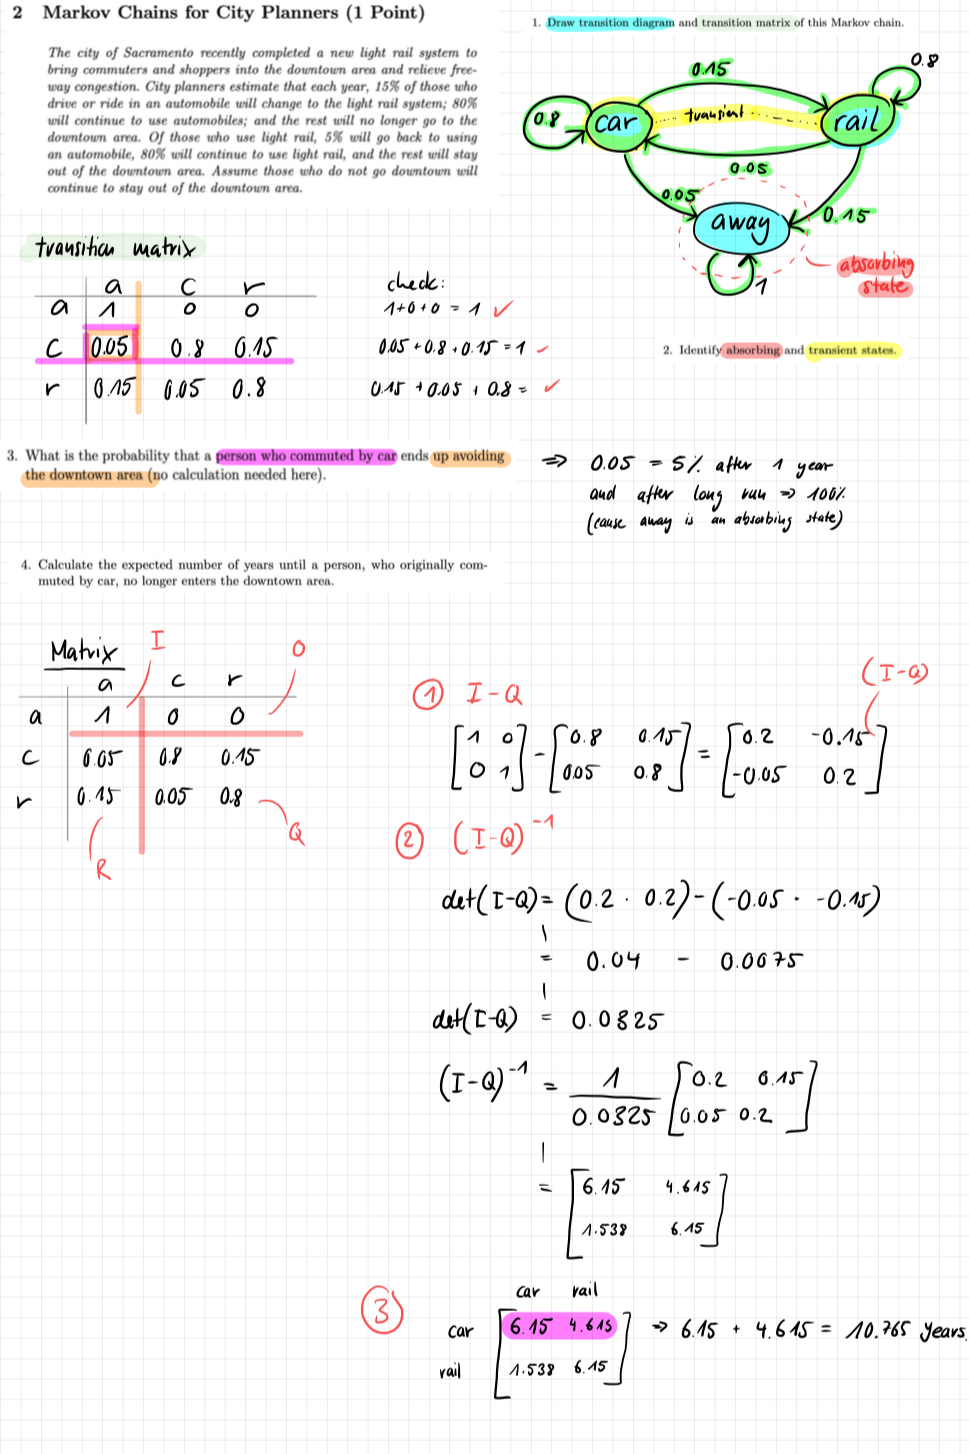 2 Markov Chains for City Planners (1 Point)
The city of Sacramento recently completed a new light rail system to
bring commuters and shoppers into the downtown area and relieve free-
way congestion. City planners estimate that each year, 15% of those who
drive or ride in an automobile will change to the light rail system; 80%
will continue to use automobiles; and the rest will no longer go to the
downtown area. Of those who use light rail, 5% will go back to using
an automobile, 80% will continue to use light rail, and the rest will stay
out of the downtown area. Assume those who do not go downtown will
continue to stay out of the downtown area.
1. Draw transition diagram and transition matrix of this Markov chain.
0.15
0.8
0.8
car
transient
rail
0.05
0.05
away
0.15
1
absorbing
state
transition matrix
a c r
a 1 0 0
c 0.05 0.8 0.15
r 0.15 0.05 0.8
check:
1+0+0 = 1 ✓
0.05 + 0.8 + 0.15 = 1 ✓
0.15 + 0.05 + 0.8 = ✓
2. Identify absorbing and transient states.
3. What is the probability that a person who commuted by car ends up avoiding
the downtown area (no calculation needed here).
⇒ 0.05 = 5% after 1 year
and after long run ⇒ 100%
(cause away is an absorbing state)
4. Calculate the expected number of years until a person, who originally com-
muted by car, no longer enters the downtown area.
Matrix
I
O
a c r
a 1 0 0
c 0.05 0.8 0.15
r 0.15 0.05 0.8
R
Q
① I-Q
(I-Q)
[1 0] - [0.8 0.15] = [0.2 -0.15]
[0 1] [0.05 0.8] [-0.05 0.2]
② (I-Q)⁻¹
det(I-Q) = (0.2 · 0.2) - (-0.05 · -0.15)
= 0.04 - 0.0075
det(I-Q) = 0.0325
(I-Q)⁻¹ = 1/0.0325 [0.2 0.15]
[0.05 0.2]
= [6.15 4.615]
[1.538 6.15]
③
car rail
car [6.15 4.615] ⇒ 6.15 + 4.615 = 10.765 years.
rail [1.538 6.15]